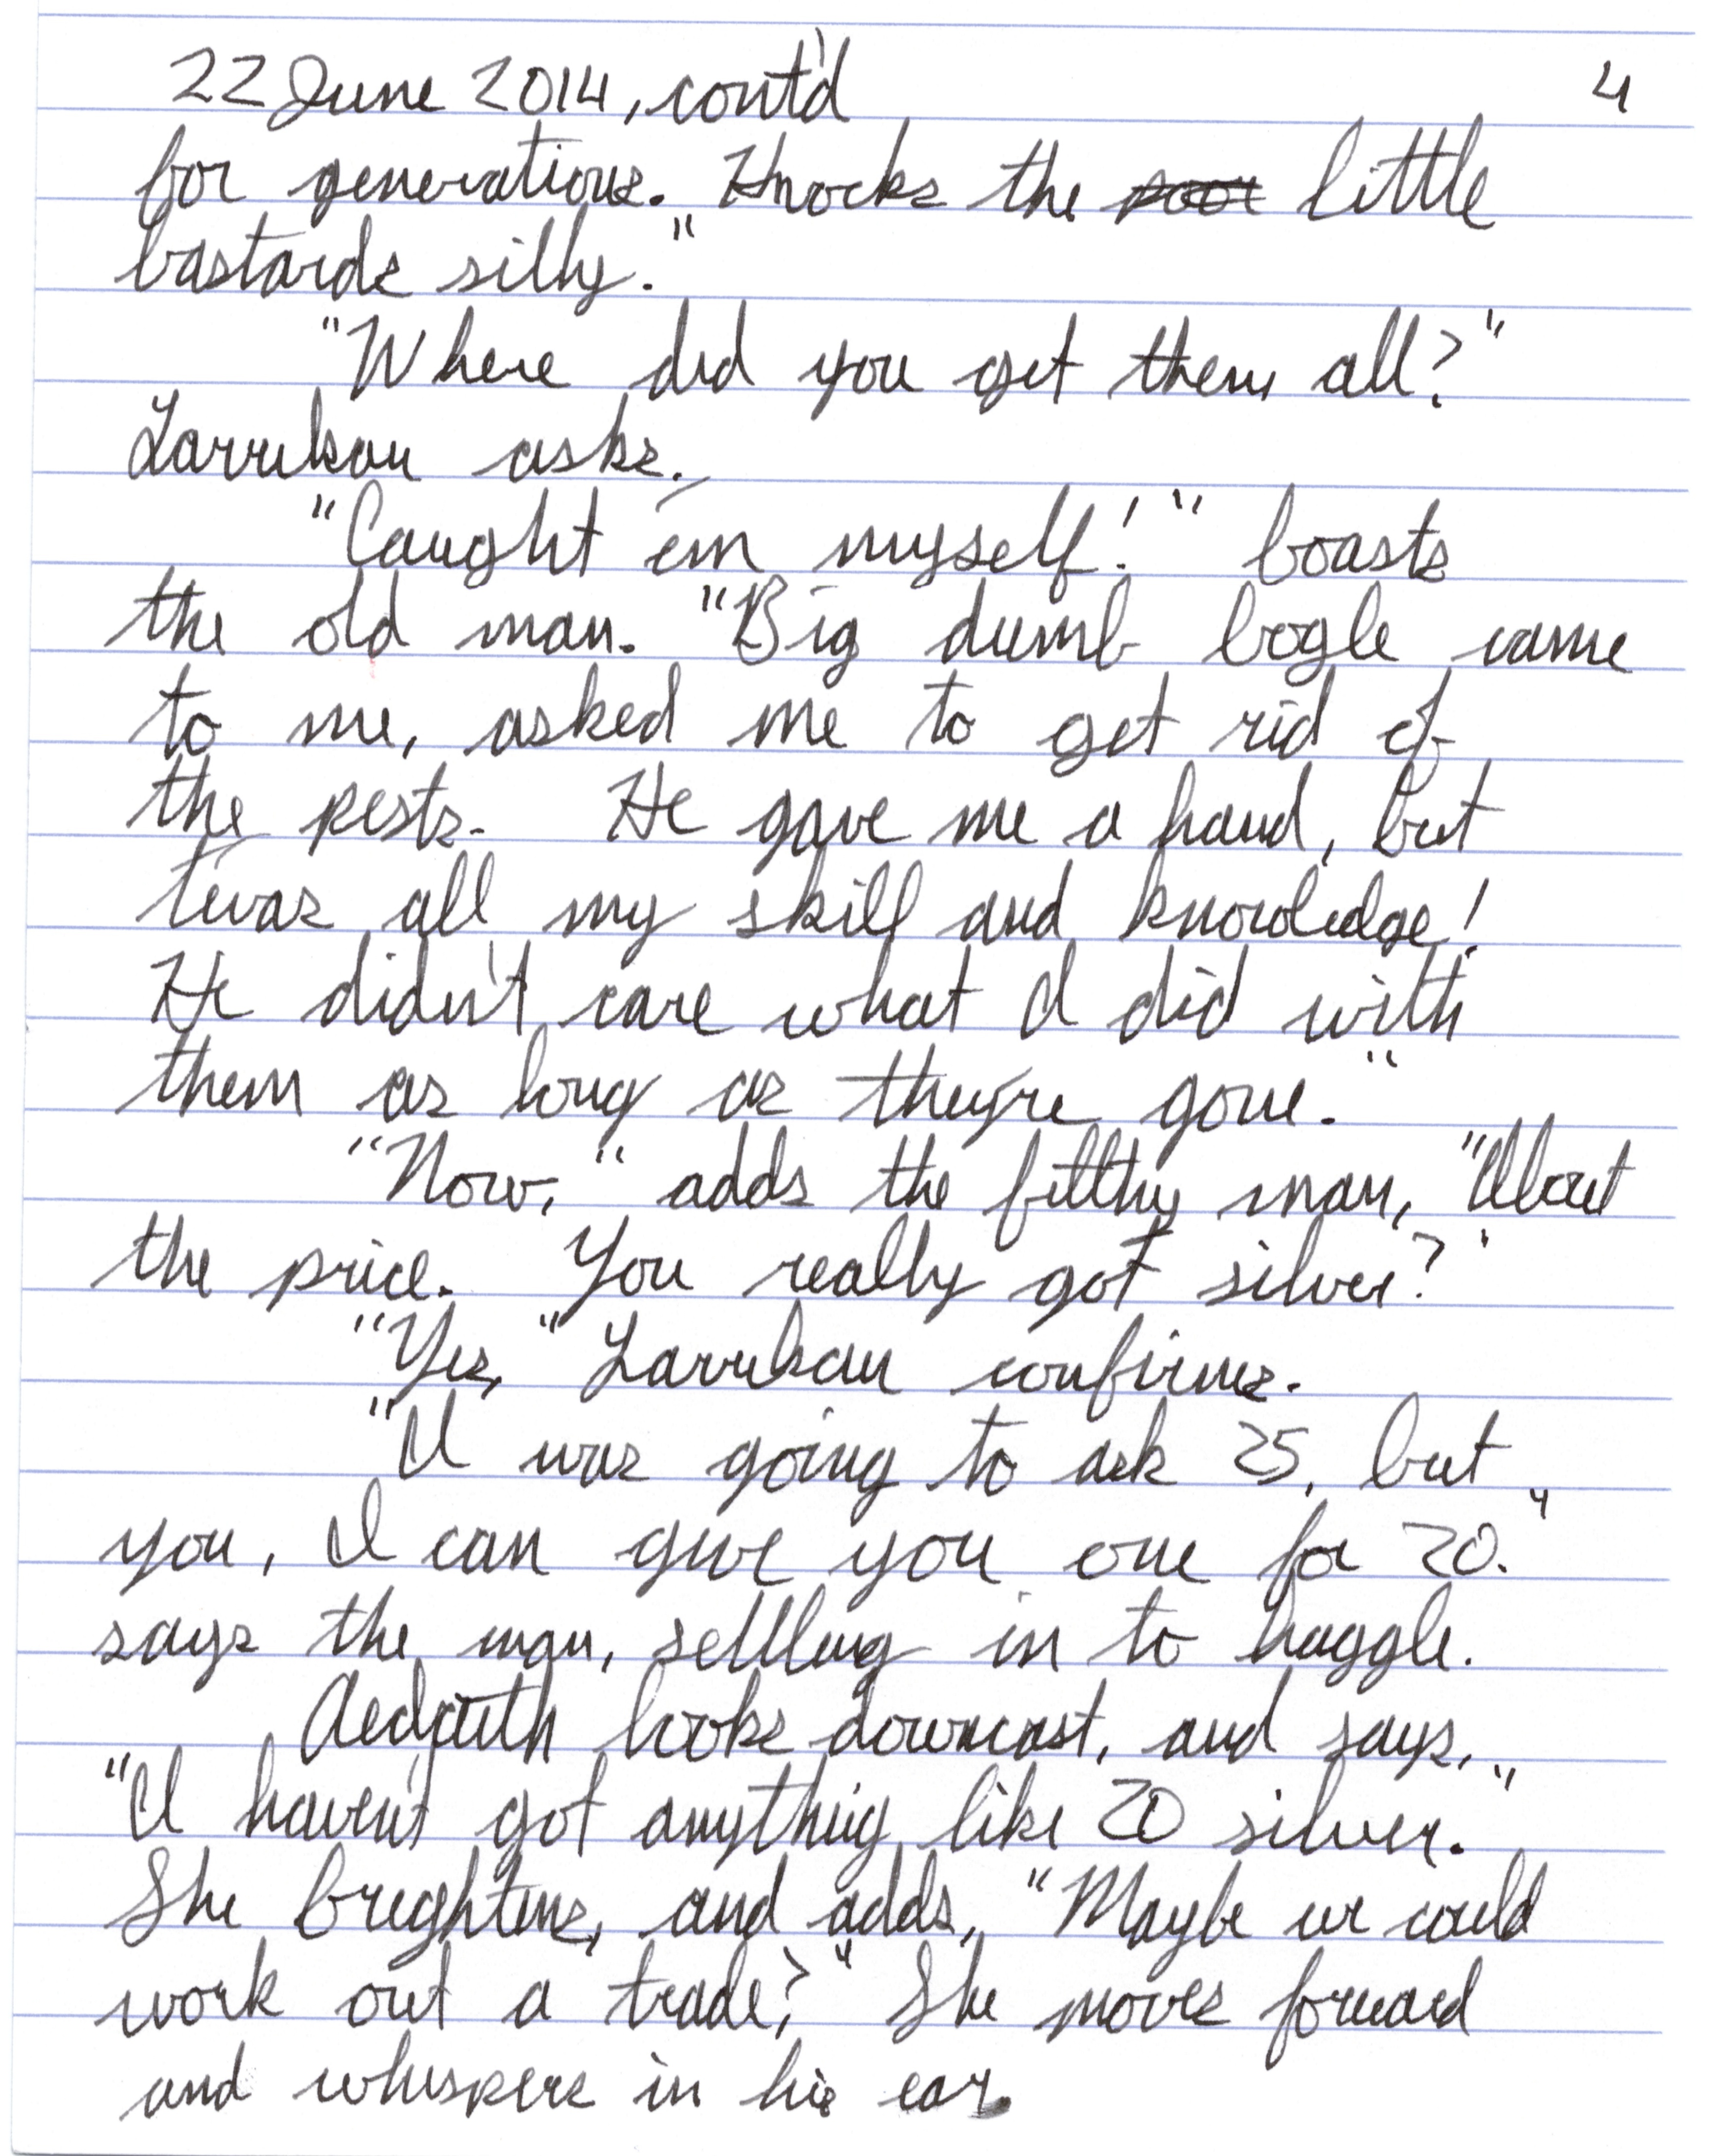 22 June 2014, cont'd 4
for generations. Knocks the poor little
bastards silly."
"Where did you get them all?"
Larrekan asks.
"Caught 'em myself!" boasts
the old man. "Big dumb bogle came
to me, asked me to get rid of
the pests. He gave me a hand, but
'twas all my skill and knowledge!
He didn't care what I did with
them as long as they're gone."
"Now," adds the filthy man, "About
the price. You really got silver?"
"Yes," Larrekan confirms.
"I was going to ask 25, but
you, I can give you one for 20."
says the man, settling in to haggle.
looks downcast, and says,
"I haven't got anything like 20 silver."
She brightens, and adds, "Maybe we could
work out a trade?" She moves forward
and whispers in his ear.